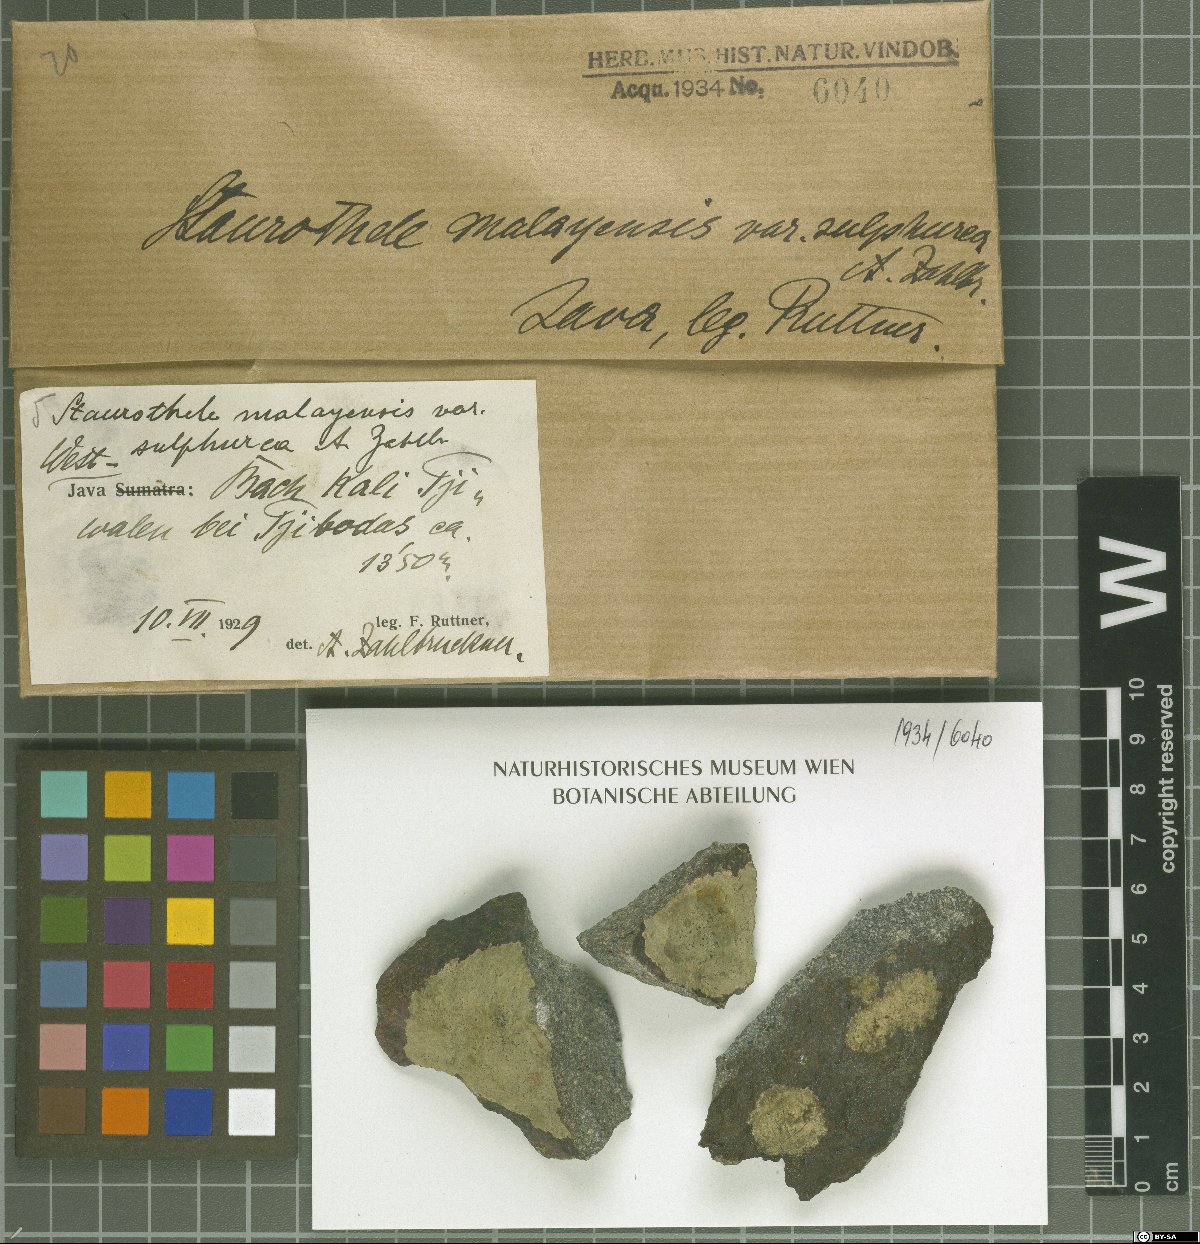 HERB. MUS. HIST. NATUR. VINDOB.
Acqu. 1934 No. 6040
Staurothele malayensis var. sulphurea
A. Zahlbr.
Java, leg. Ruttner.
Staurothele malayensis var.
sulphurea A Zahlb
West-
Java Sumatra:
Bach Kali Tji
walen bei Tjibodas ca.
1350 m.
10. VII. 1929
leg. F. Ruttner,
det. A. Zahlbruckner.
1934/6040
NATURHISTORISCHES MUSEUM WIEN
BOTANISCHE ABTEILUNG
W
10
9
8
7
6
5
4
3
2
1
0
cm
copyright reserved
cc BY-SA